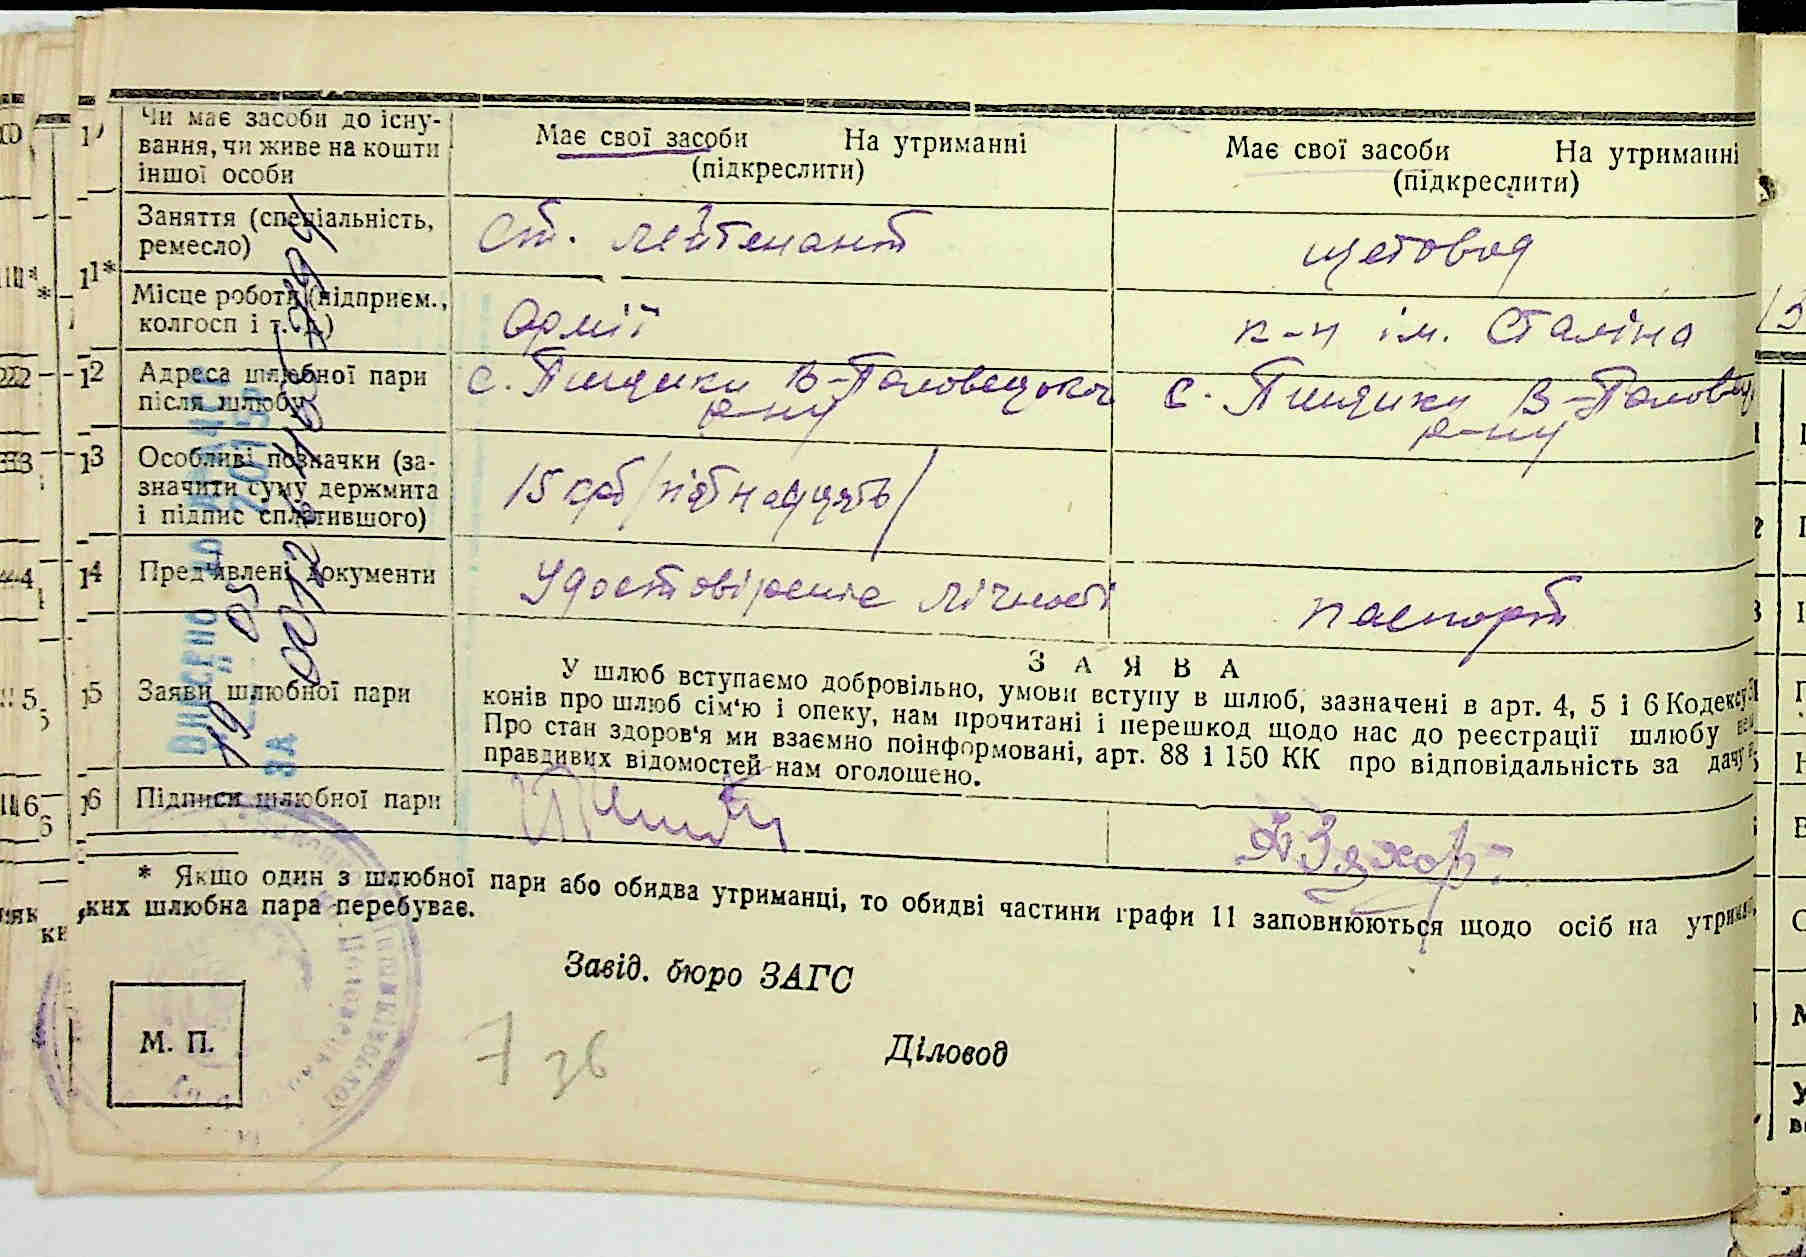 Чи має засоби до існу-
вання, чи живе на кошти
іншої особи
Має свої засоби На утриманні
(підкреслити)
Має свої засоби На утриманні
(підкреслити)
11*
Заняття (спеціальність,
ремесло)
ст. лейтенант
щетовод
Місце роботи (підприєм.,
колгосп і т. д.)
Армії
к-п ім. Сталіна
12
Адреса шлюбної пари
після шлюбу
с. Пищики В-Половецького
р-ну
с. Пищики В-Половец
р-ну
13
Особливі позначки (за-
значити суму держмита
і підпис сплатившого)
15 крб /пятнадцять/
14
Пред'явлені документи
Удостовіреніє лічності
паспорт
15
Заяви шлюбної пари
ЗАЯВА
У шлюб вступаємо добровільно, умови вступу в шлюб, зазначені в арт. 4, 5 і 6 Кодексу
конів про шлюб сім'ю і опеку, нам прочитані і перешкод щодо нас до реєстрації шлюбу
Про стан здоров'я ми взаємно поінформовані, арт. 88 і 150 КК про відповідальність за дачу
правдивих відомостей нам оголошено.
16
Підписи шлюбної пари
* Якщо один з шлюбної пари або обидва утриманці, то обидві частини графи 11 заповнюються щодо осіб на
ких шлюбна пара перебуває.
Завід. бюро ЗАГС
М. П.
Діловод